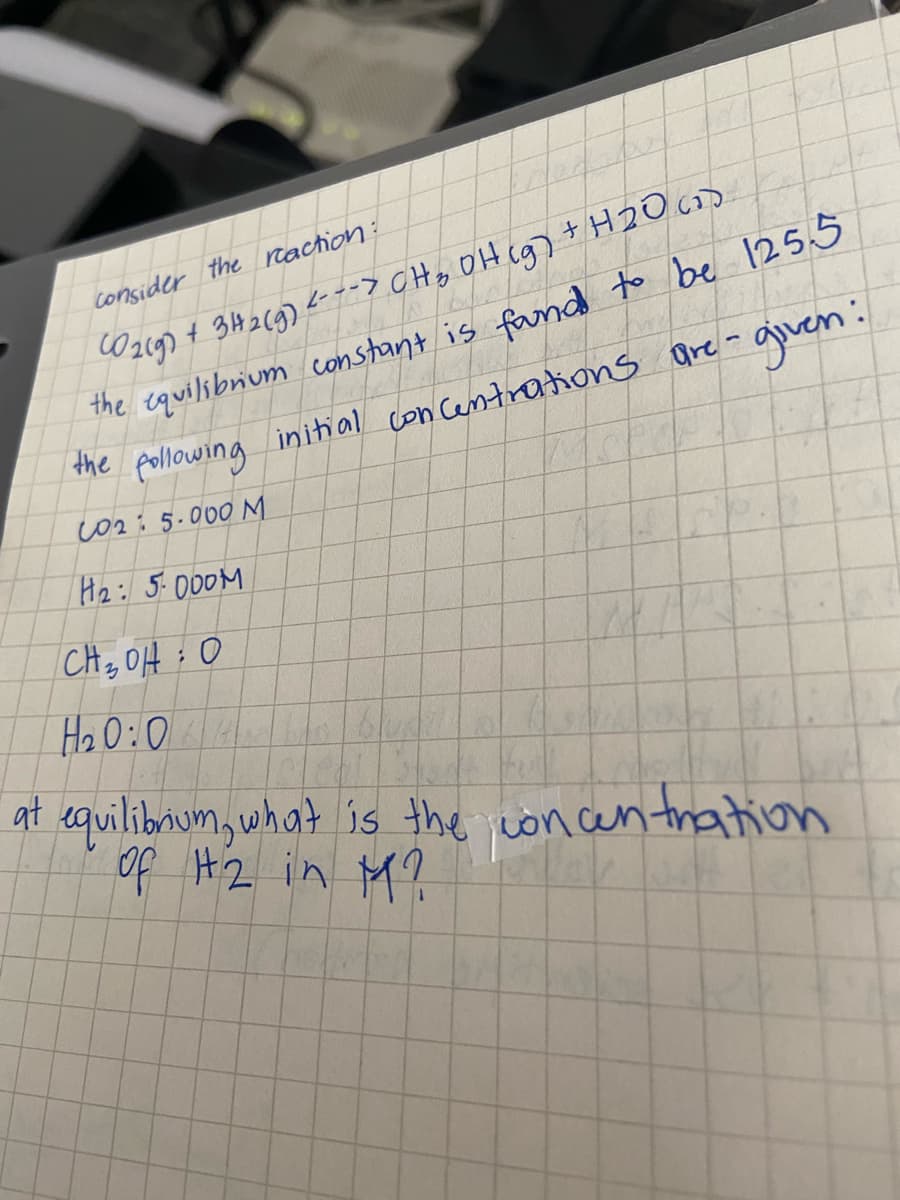 consider the reaction:
CO2(g) + 3H2(g) <---> CH3OH(g) + H2O(l)
the equilibrium constant is found to be 125.5
the following initial concentrations are - given:
CO2: 5.000 M
H2: 5.000M
CH3OH : 0
H2O:0
at equilibrium, what is the concentration
of H2 in M?